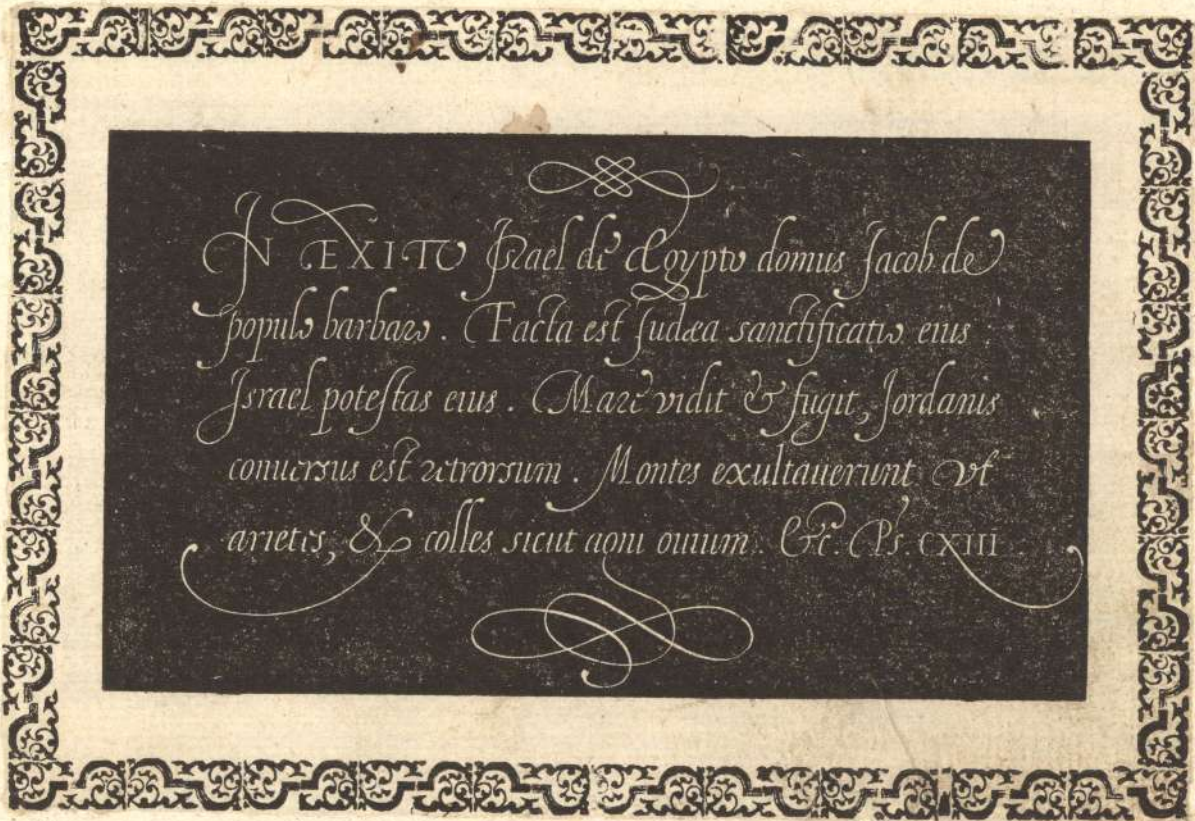 IN EXITV Jsrael de Ægypto domus Jacob de
populo barbaro. Facta est Judæa sanctificatio eius
Jsrael potestas eius. Mare vidit & fugit, Jordanis
conuersus est retrorsum. Montes exultauerunt vt
arietes, & colles sicut agni ouium. &c. Ps. CXIII